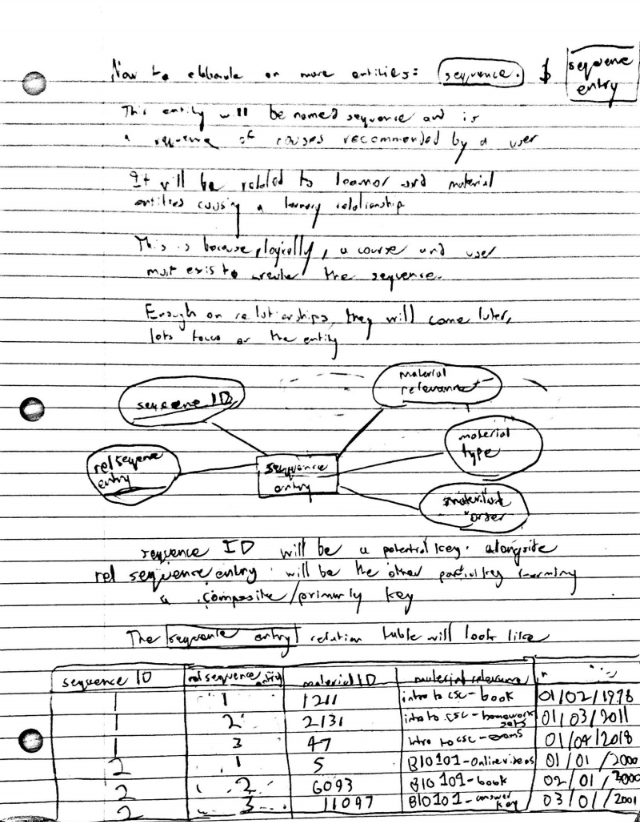 Now to elaborate on more entities: sequence. & sequence
entry
This entity will be named sequence and is
a sequence of courses recommended by a user
It will be related to learner and material
entities causing a ternary relationship
This is because, logically, a course and user
must exist to create the sequence.
Enough on relationships, they will come later,
lets focus on the entity
sequence ID
material
relevance
rel sequence
entry
sequence
entry
material
type
order
sequence ID will be a potential key. alongside
rel sequence entry. will be the other partial key forming
a composite/primary key
The sequence entry relation table will look like
sequence ID rel sequence entry material ID material relevance
1 1 1211 intro to csc - book 01/02/1998
1 2 2131 intro to csc - homework 01/03/2011
1 3 47 intro to csc - exams 01/04/2018
2 1 5 BIO101 - Online videos 01/01/2000
2 2 6093 BIO 101 - book 02/01/3000
2 3 11097 BIO101 - answer key 03/01/2001